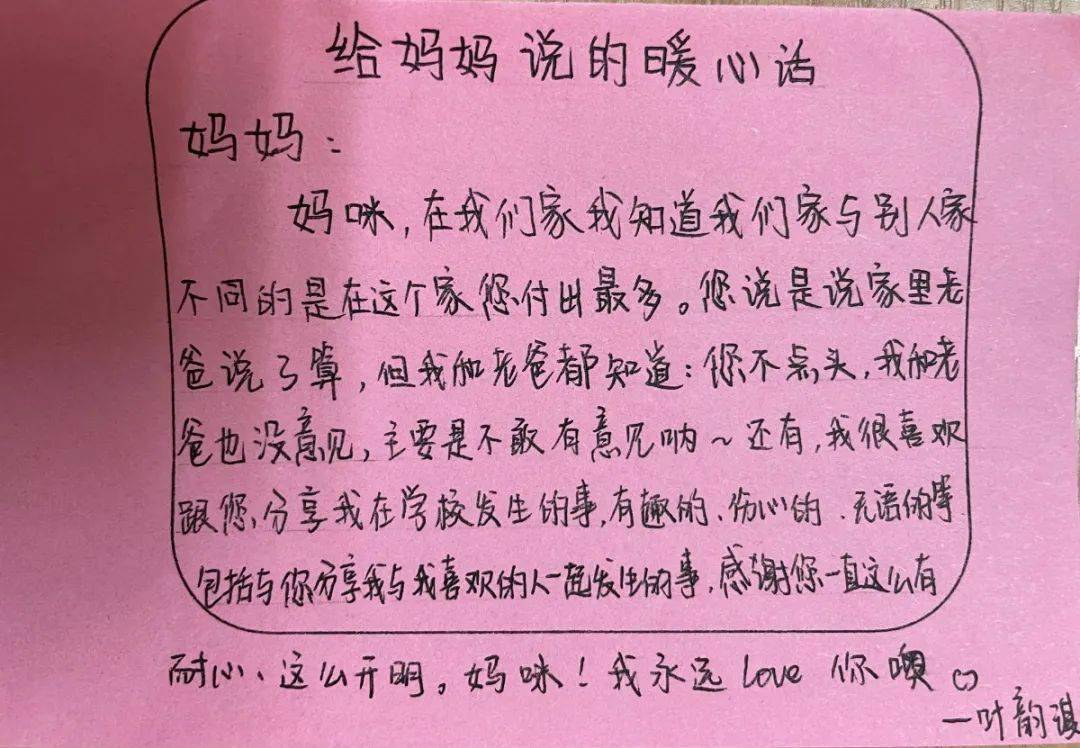 给妈妈说的暖心话
妈妈：
妈咪，在我们家我知道我们家与别人家
不同的是在这个家您付出最多。您说是说家里老
爸说了算，但我和老爸都知道：你不点头，我和老
爸也没意见，主要是不敢有意见呐～还有，我很喜欢
跟您分享我在学校发生的事，有趣的、伤心的、无语的等
包括与你分享我与我喜欢的人一起发生的事，感谢您一直这么有
耐心、这么开明。妈咪！我永远Love 你噢♡
—叶韵淇